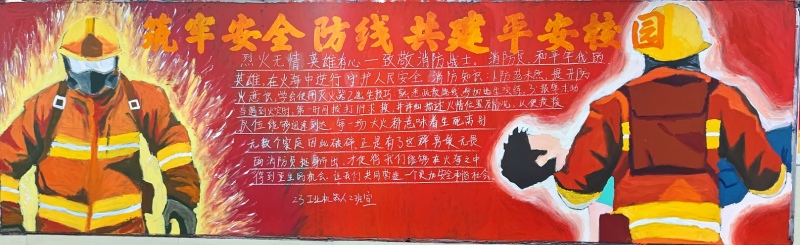 筑牢安全防线共建平安校园
烈火无情 英雄有心一致敬消防战士，消防员，和平年代的
英雄 在火海中逆行 守护人民安全 消防知识 人防范未然 提升防
火意识 学会使用灭火器
与遇到火灾时，第一时间拨打119求救 并详细描述火情位置及情况，以便救援
队伍能够迅速到达 每一场大火都意味着生死离别
无数个家庭因此破碎 正是有了这群勇敢无畏
的消防员挺身而出，才使得我们能够在火海之中
得到重生的机会，让我们共同营造一个更加安全和谐社会
23工业机器人2班宣